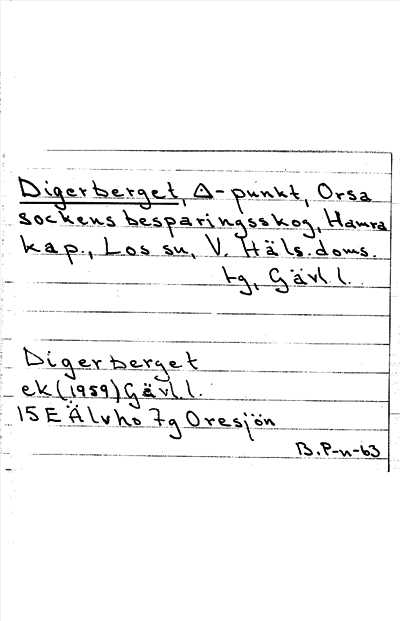 Digerberget, △-punkt, Orsa
sockens besparingsskog, Hamra
kap., Los sn, V. Häls. doms.
tg, Gävl. l.
Digerberget
ek (1959) Gävl. l.
15E Älvho 7g Oresjön
B. P-n-63